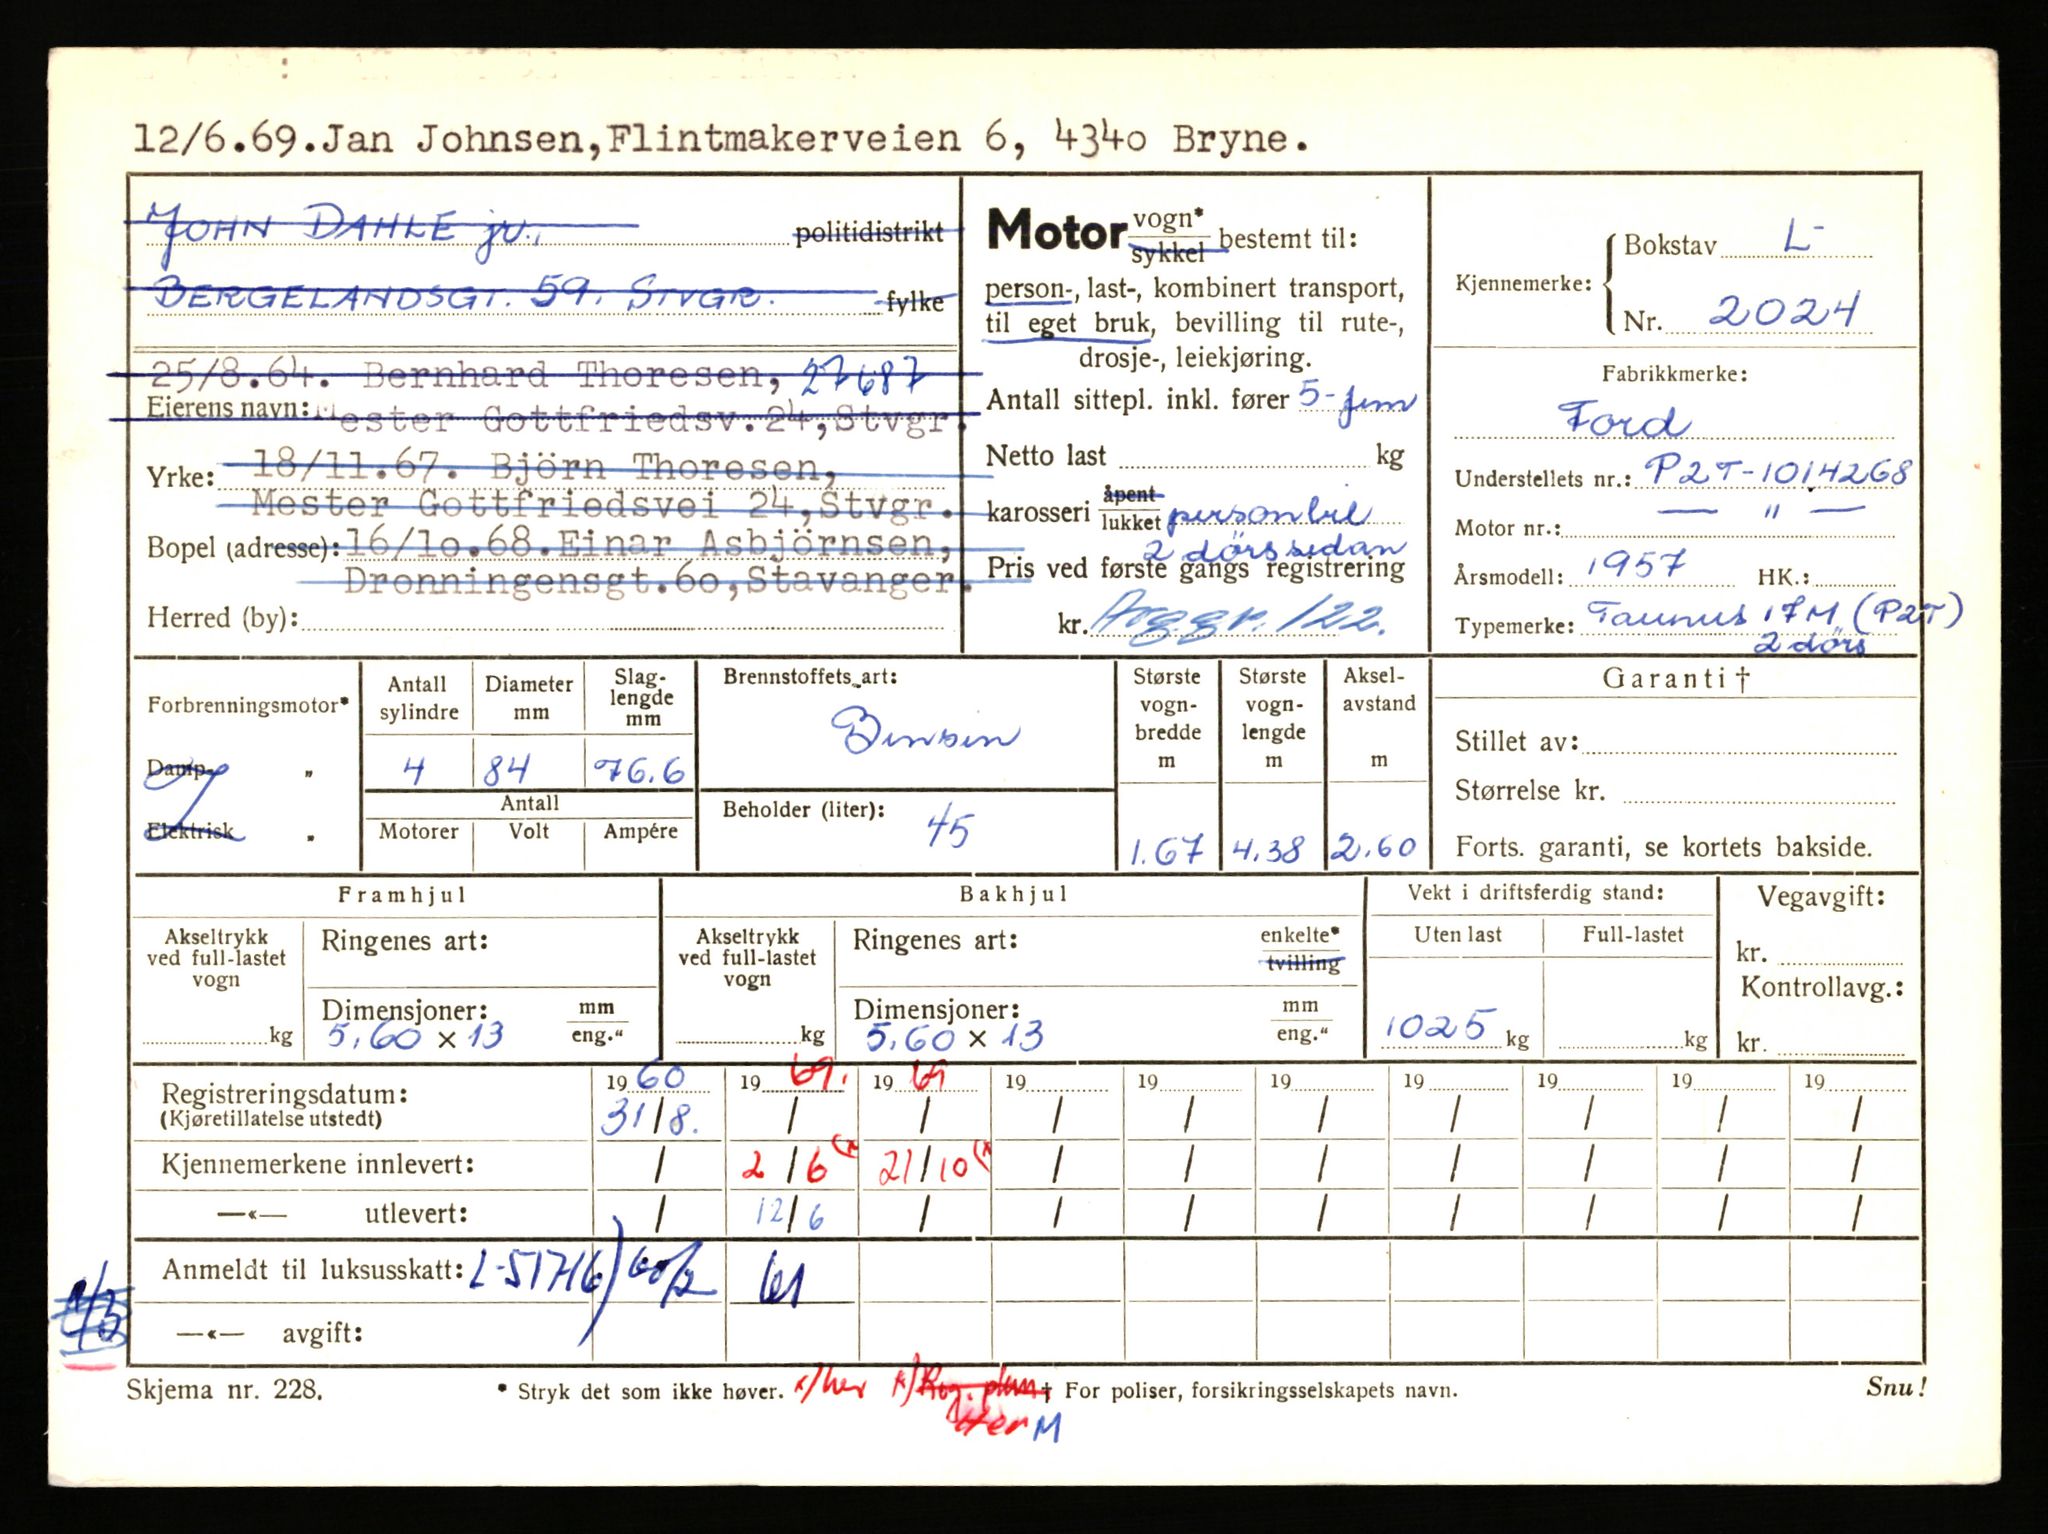 12/6.69.Jan Johnsen,Flintmakerveien 6, 4340 Bryne.
JOHN DAHLE jr., politidistrikt
BERGELANDSGT. 59. STVGR. fylke
25/8.64. Bernhard Thoresen, 27687
Eierens navn: Mester Gottfriedsv.24,Stvgr.
Yrke: 18/11.67. Björn Thoresen,
Mester Gottfriedsvei 24,Stvgr.
Bopel (adresse): 16/10.68.Einar Asbjörnsen,
Dronningensgt.60,Stavanger.
Herred (by):
Motor vogn* sykkel bestemt til:
person-, last-, kombinert transport,
til eget bruk, bevilling til rute-,
drosje-, leiekjøring.
Antall sittepl. inkl. fører 5-fem
Netto last kg
karosseri åpent lukket personbil
2 dørs sedan
Pris ved første gangs registrering
kr. Avg.gr. 122.
Kjennemerke: Bokstav L-
Nr. 2024
Fabrikkmerke:
Ford
Understellets nr.: P2T-1014268
Motor nr.: — " —
Årsmodell: 1957 HK.:
Typemerke: Taunus 17M (P2T)
2 dørs
Forbrenningsmotor*
Damp- "
Elektrisk "
Antall sylindre
Diameter mm
Slag-lengde mm
4 84 76.6
Antall
Motorer Volt Ampére
Brennstoffets art:
Bensin
Beholder (liter): 45
Største vogn-bredde m
1.67
Største vogn-lengde m
4.38
Aksel-avstand m
2.60
Garanti †
Stillet av:
Størrelse kr.
Forts. garanti, se kortets bakside.
Framhjul
Akseltrykk ved full-lastet vogn
kg
Ringenes art:
Dimensjoner: mm eng."
5.60 x 13
Bakhjul
Akseltrykk ved full-lastet vogn
kg
Ringenes art: enkelte* tvilling
Dimensjoner: mm eng."
5.60 x 13
Vekt i driftsferdig stand:
Uten last Full-lastet
1025 kg kg
Vegavgift:
kr.
Kontrollavg.:
kr.
Registreringsdatum: 19 60 19 69. 19 69 19 19 19 19 19 19 19
(Kjøretillatelse utstedt) 31/8. / / / / / / / / /
Kjennemerkene innlevert: / 2/6 (x 21/10 (x / / / / / / /
—«— utlevert: / 12/6 / / / / / / / /
Anmeldt til luksusskatt: L-51716) 60/2 61
—«— avgift:
Skjema nr. 228.
* Stryk det som ikke høver. x/her x/ Reg. † For poliser, forsikringsselskapets navn.
Snu!
Her M